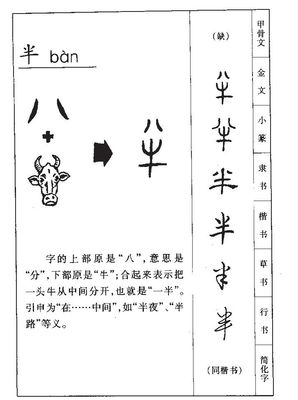 半 bàn
字的上部原是“八”，意思是
“分”，下部原是“牛”；合起来表示把
一头牛从中间分开，也就是“一半”。
引申为“在……中间”，如“半夜”、“半
路”等义。
（缺）
半
半
半
半
半
半
（同楷书）
甲骨文
金文
小篆
隶书
楷书
草书
行书
简化字